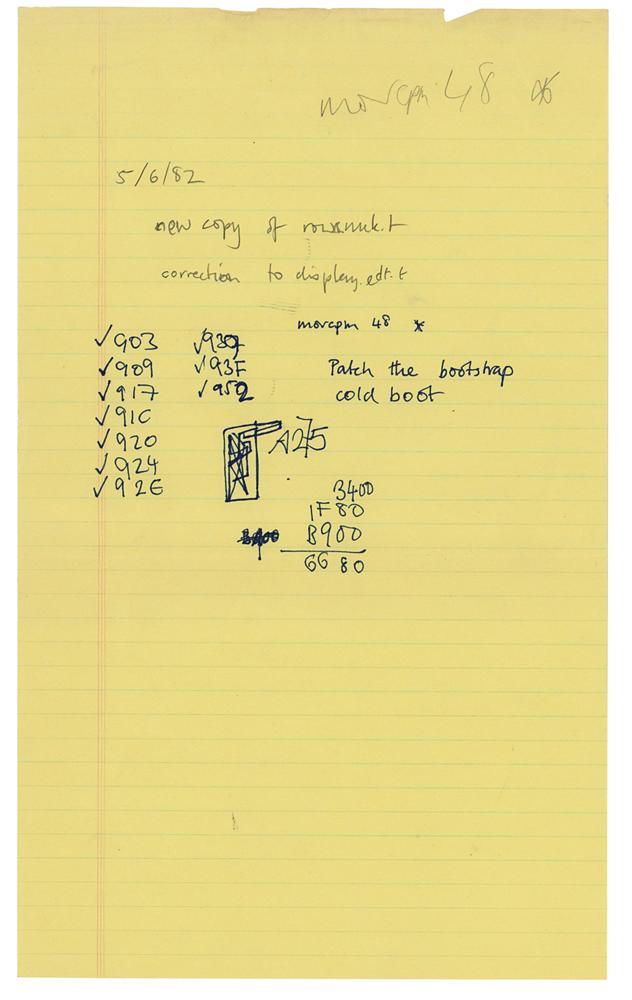 movcpm 48 *
5/6/82
new copy of
correction to display.edt.t
movcpm 48 *
✓903 ✓939
✓909 ✓93F Patch the bootstrap
✓917 ✓952 cold boot
✓91C
✓920
✓924
✓92E
A275
3400
1F80
B900
6680